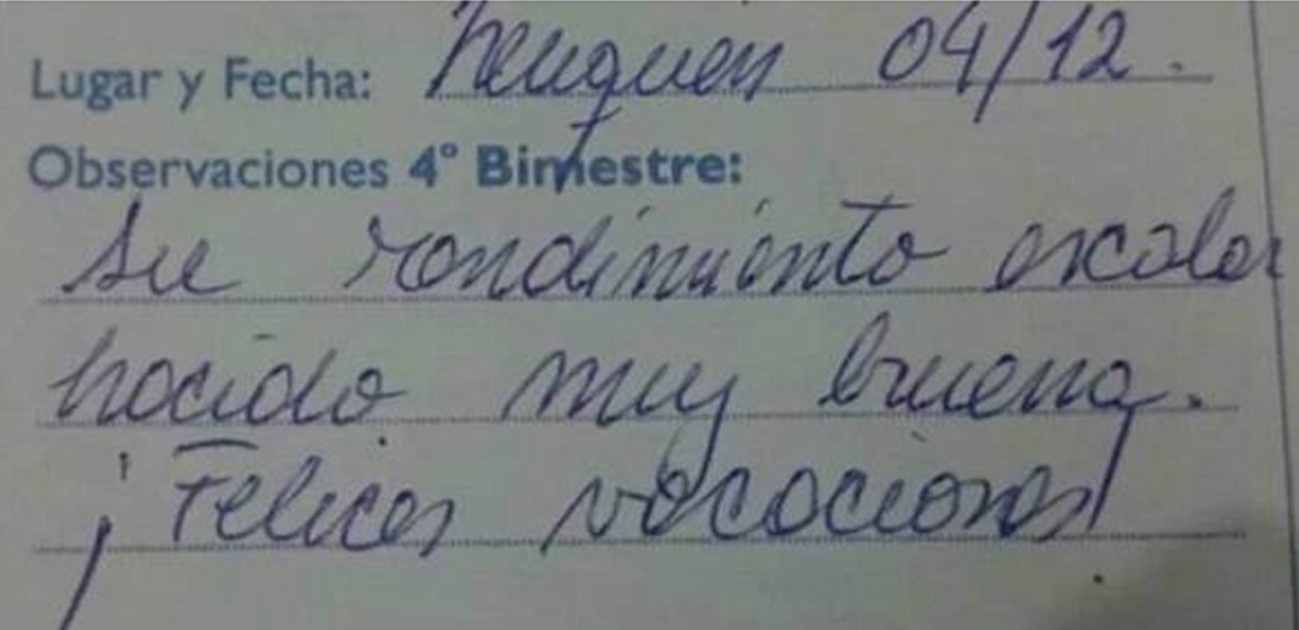 Lugar y Fecha: Neuquen 04/12.
Observaciones 4° Bimestre:
Su rendimiento escolar
hacido muy bueno.
¡Felices vacaciones!